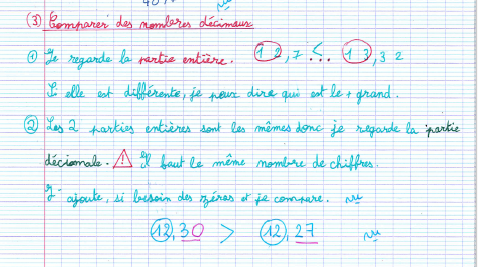 ③ Comparer des nombres décimaux
① Je regarde la partie entière. 12,7 <... 13,32
Si elle est différente, je peux dire qui est le + grand.
② Les 2 parties entières sont les mêmes donc je regarde la partie
décimale. ⚠ Il faut le même nombre de chiffres.
J'ajoute, si besoin des zéros et je compare.
12,30 > 12,27